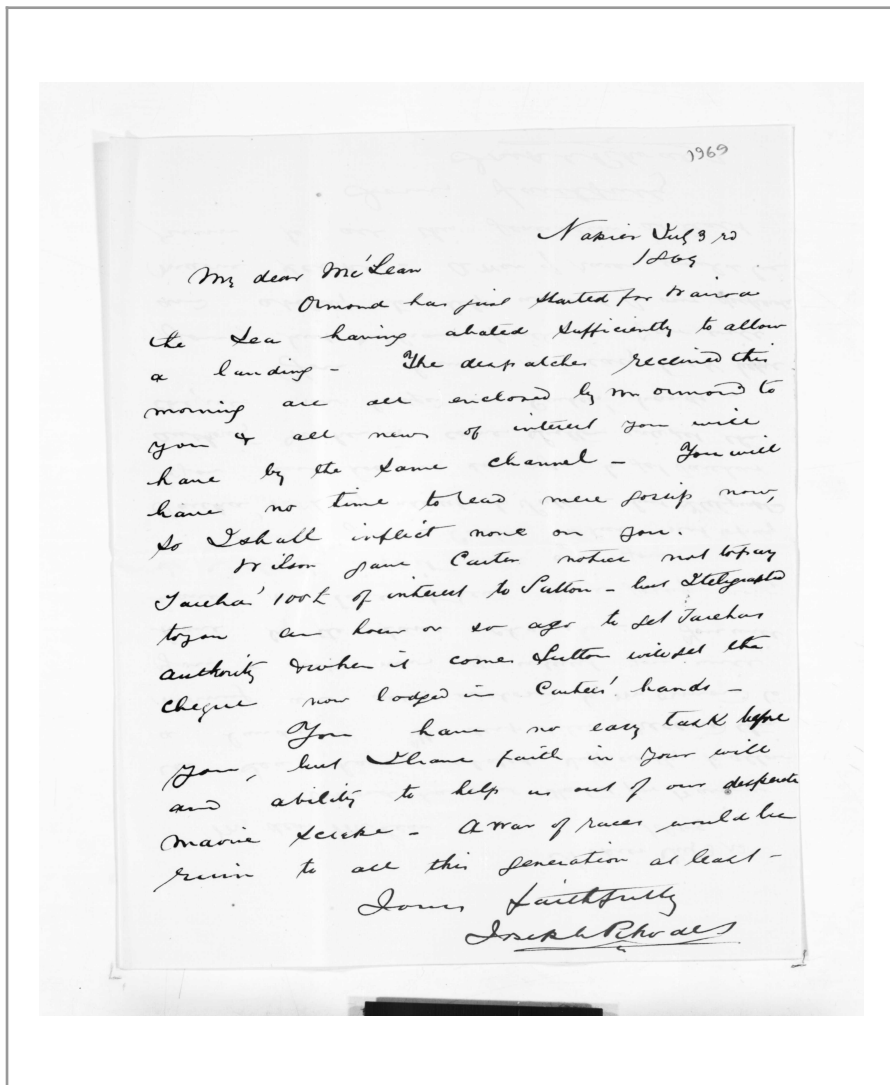 1969
Napier July 3rd
1869
My dear McLean
Ormond has just started for Wairoa
the sea having abated sufficiently to allow
a landing - The despatches received this
morning are all enclosed by Mr Ormond to
you & all news of interest you will
have by the same channel - You will
have no time to read mere gossip now,
so I shall inflict none on you.
Wilson gave Carter notice not to pay
Tareha' 100£ of interest to Sutton - but I telegraphed
to you an hour or so ago to get Tarehas
authority & when it comes Sutton will get the
cheque now lodged in hands -
You have no easy task before
you, but I have faith in your will
and ability to help us out of our desperate
Maorie - A war of races would be
ruin to all this generation at least -
Yours faithfully
Joseph Rhodes